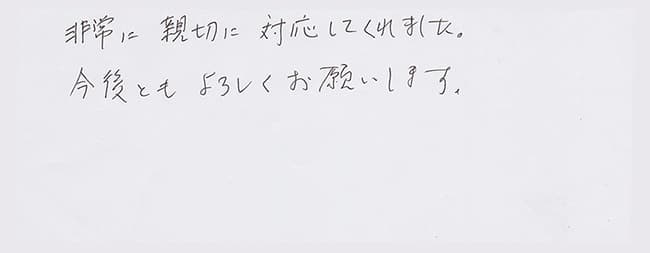 非常に 親切に 対応してくれました。
今後とも よろしく お願いします。